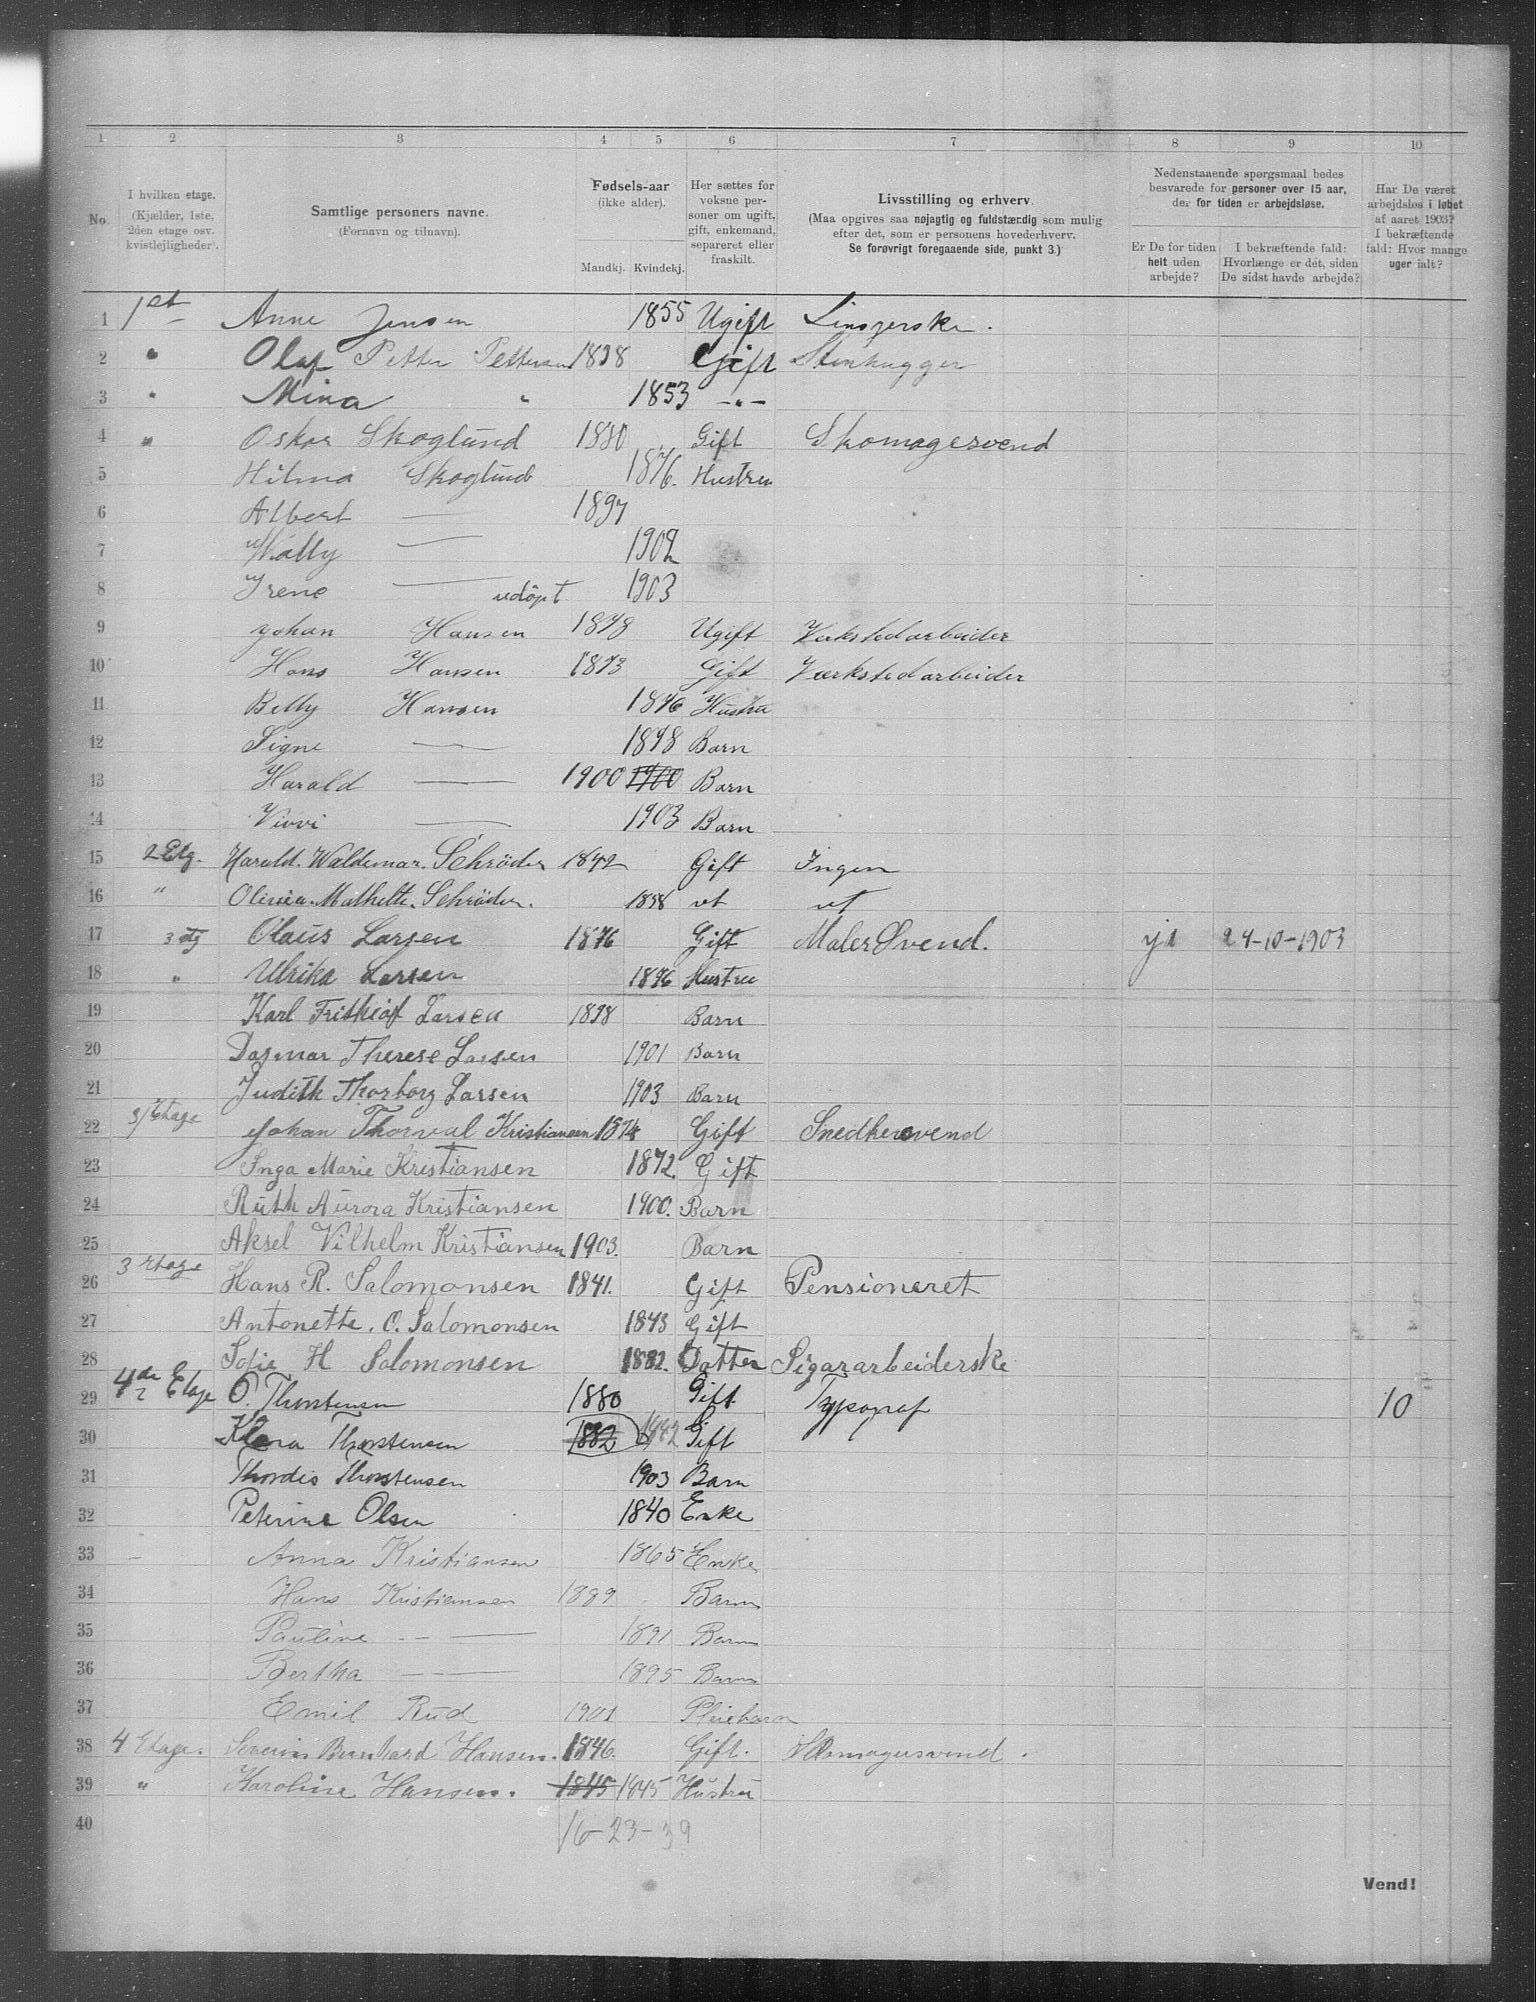 1 2 3 4 5 6 7 8 9 10
No.
I hvilken etage.
(Kjælder, 1ste, 2den etage osv. kvistleiligheder).
Samtlige personers navne.
(Fornavn og tilnavn).
Fødsels-aar
(ikke alder).
Mandkj. Kvindekj.
Her sættes for voksne personer om ugift, gift, enkemand, separeret eller fraskilt.
Livsstilling og erhverv.
(Maa opgives saa nøjagtig og fuldstærdig som mulig efter det, som er personens hovederhverv.
Se forøvrigt foregaaende side, punkt 3.)
Nedenstaaende spørgsmaal bedes besvarede for personer over 15 aar, der for tiden er arbejdsløse.
Er De for tiden helt uden arbejde?
I bekræftende fald: Hvorlænge er det, siden De sidst havde arbejde?
Har De været arbejdsløs i løbet af aaret 1903? I bekræftende fald: Hvor mange uger ialt?
1 1 et Anne Jensen 1855 Ugift
2 " Olaf Petter Pettersen 1838 Gift Stenhugger
3 " Mina " 1853 -"-
4 " Oskar Skoglund 1880 Gift Skomagersvend
5 Hilma Skoglund 1876. Hustru
6 Albert — 1897
7 Wally — 1902
8 Irene — udöpt 1903
9 Johan Hansen 1878 Ugift Verkstedarbeider
10 Hans Hansen 1873 Gift Værkstedarbeider
11 Betty Hansen 1876 Hustru
12 Signe — 1898 Barn
13 Harald — 1900 1900 Barn
14 Vivvi — 1903 Barn
15 2 Etg. Harald. Waldemar. Schröder 1842 Gift Ingen
16 " Schröder. 1838 ut ut
17 3 etg Olaus Larsen 1876 Gift Maler Svend. ja 24-10-1903
18 " Ulrika Larsen 1876 Hustru
19 Karl Frithiof Larsen 1898 Barn
20 Dagmar Therese Larsen 1901 Barn
21 Judith Thorborg Larsen 1903 Barn
22 3/Etage Johan Thorval Kristiansen 1874 Gift Snedkersvend
23 Inga Marie Kristiansen 1872. Gift
24 Ruth Aurora Kristiansen 1900. Barn
25 Aksel Vilhelm Kristiansen 1903. Barn
26 3 etage Hans R. Salomonsen 1841. Gift Pensioneret
27 Antonette. O. Salomonsen 1843 Gift
28 Sofie H Salomonsen 1882. Datter Sigararbeiderske
29 4de Etage O. Thorstensen 1880 Gift Typograf 10
30 Klara Thorstensen 1882 1882 Gift
31 Thordis Thorstensen 1903 Barn
32 Peterine Olsen 1840 Enke
33 — Anna Kristiansen 1865 Enke
34 Hans Kristiansen 1889 Barn
35 Pauline — — 1891 Barn
36 Bertha — — 1895 Barn
37 Emil Rud 1901 Pleiebarn
38 4 Etage. Severin Bernhard Hansen. 1846. Gift. Skomagersvend.
39 " Karoline Hansen. 1845 1845 Hustru
40 16-23-39
Vend!